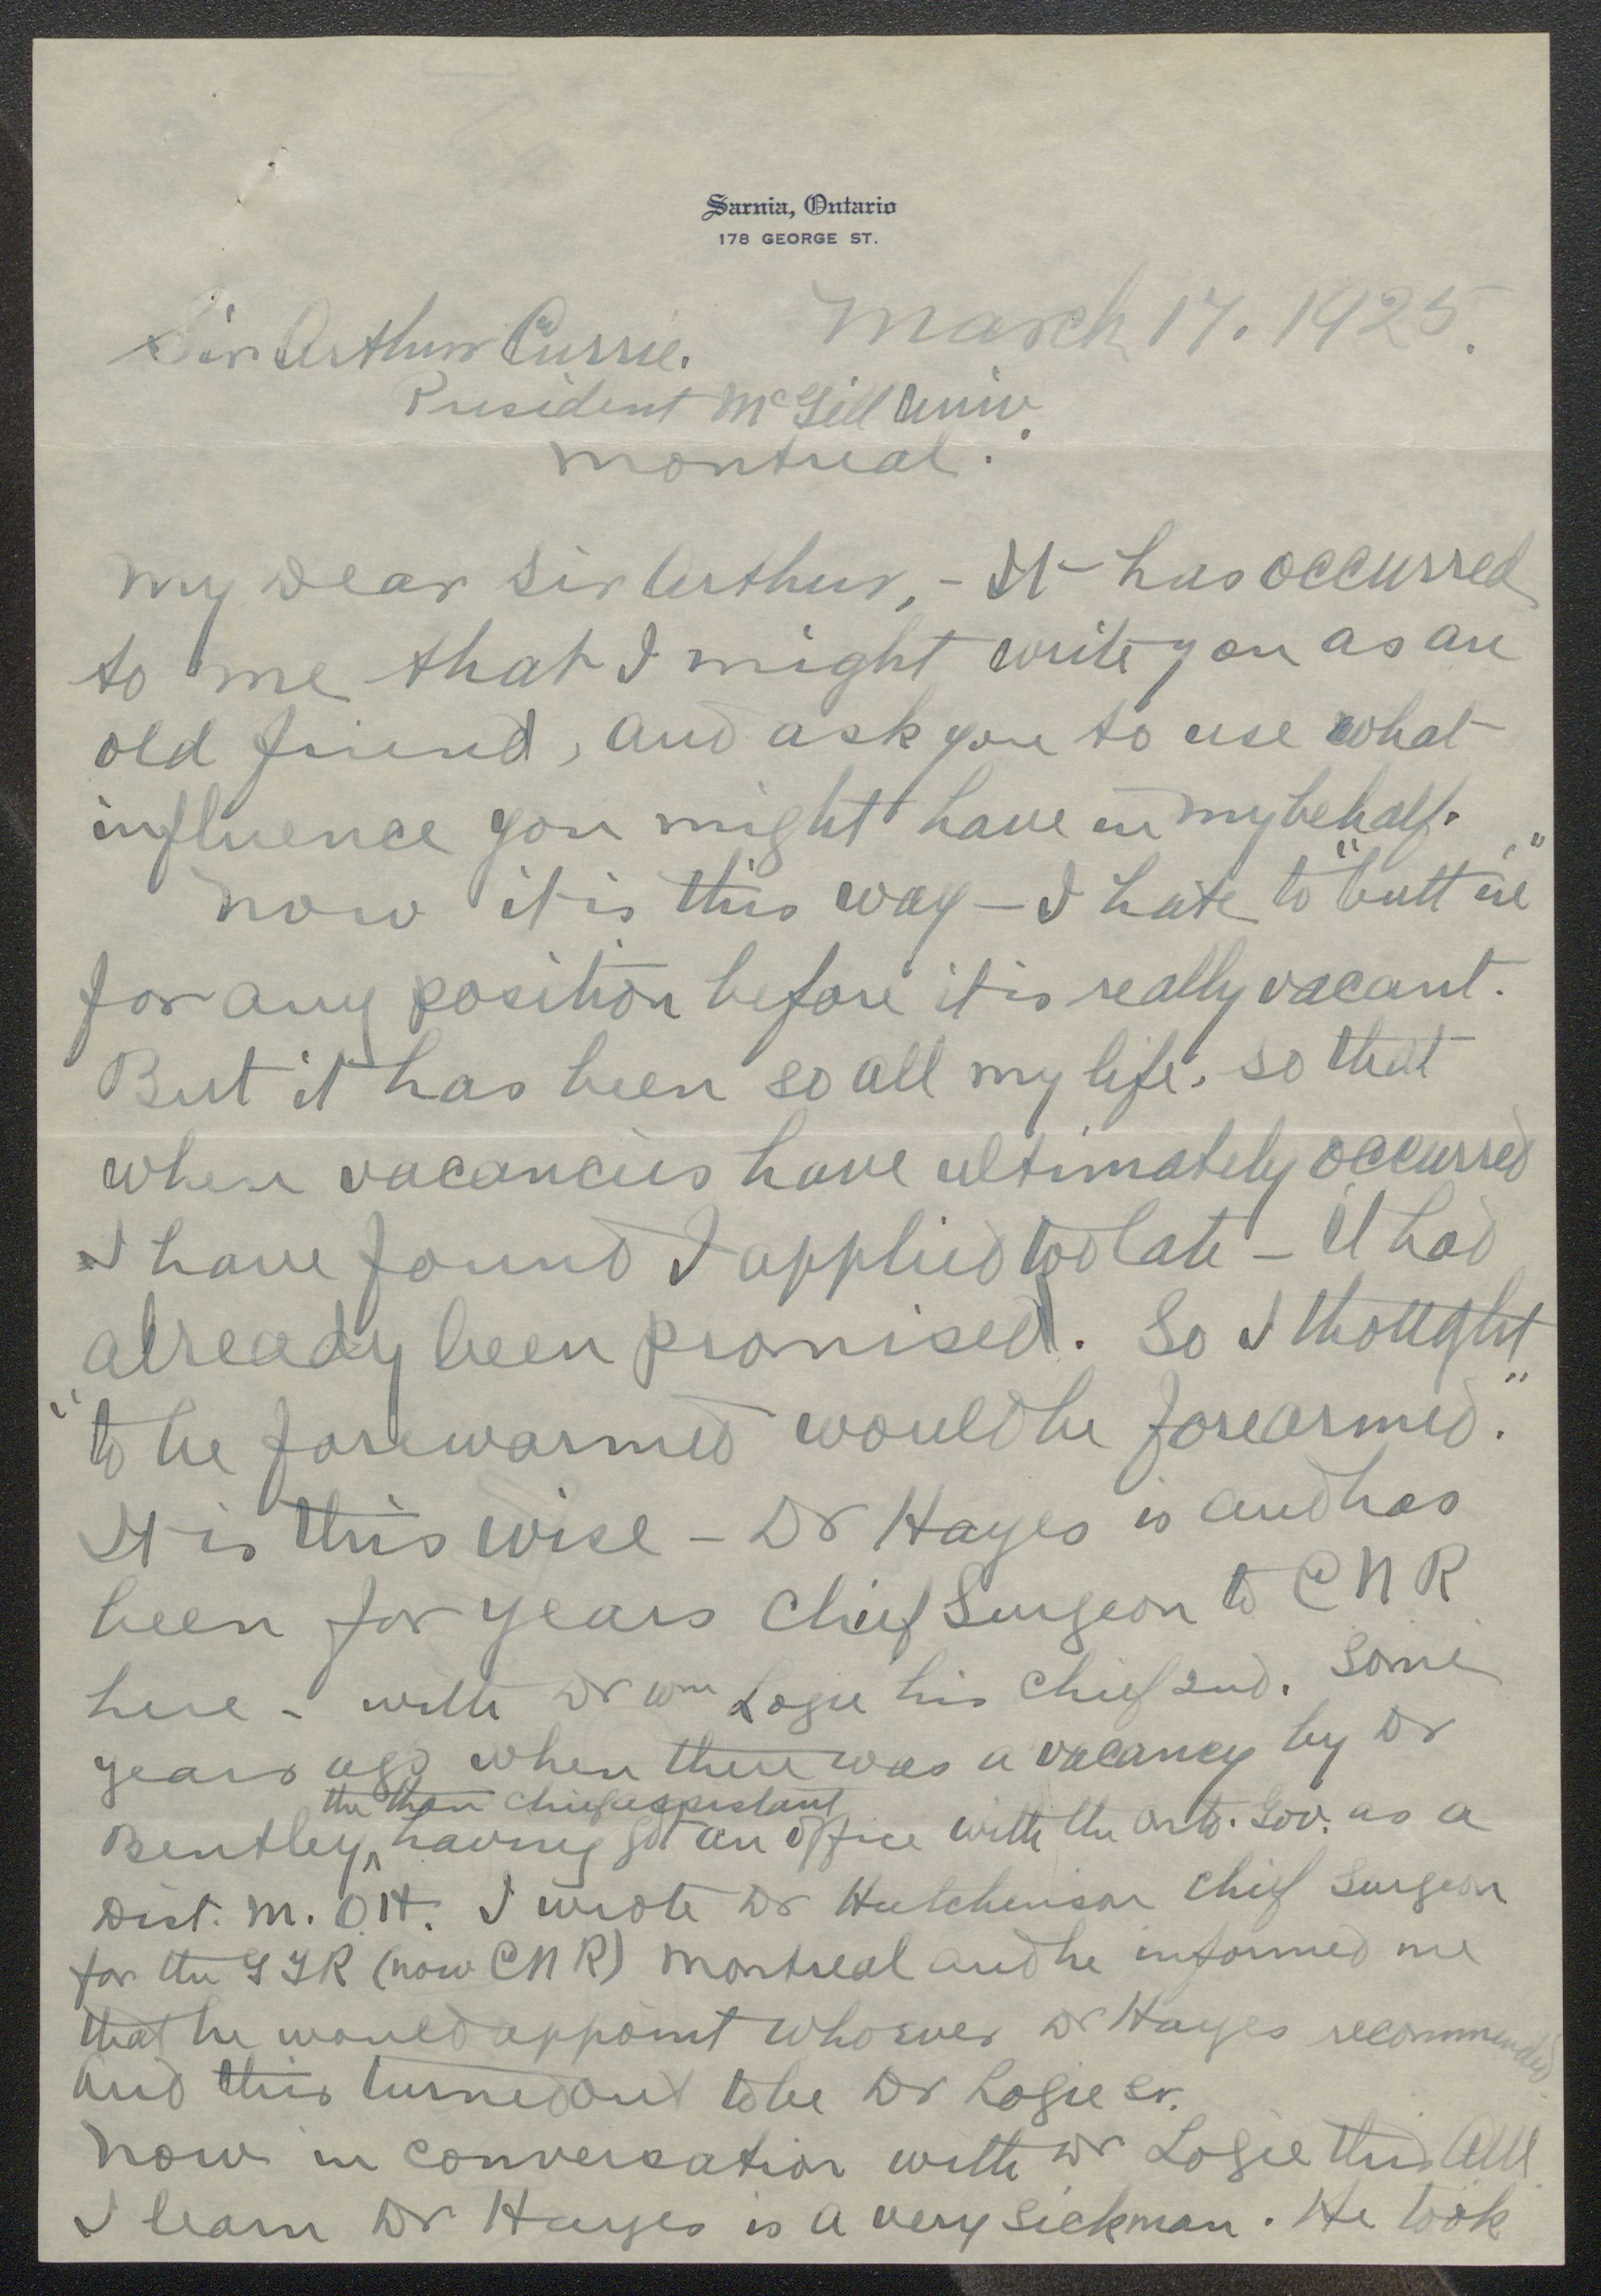 Sarnia, Ontario
178 GEORGE ST.
March 17. 1925.
Sir Arthur Currie.
President McGill Univ.
Montreal.
My Dear Sir Arthur, - It has occurred
to me that I might write you as an
old friend, and ask you to use what
influence you might have in my behalf.
Now it is this way - I hate to "butt in"
for any position before it is really vacant.
But it has been so all my life, so that
when vacancies have ultimately occurred
I have found I applied too late - it had
already been promised. So I thought
"to be forewarned would be forearmed."
It is this wise - Dr Hayes is and has
been for years Chief Surgeon to C N R
here - with Dr Wm Logie his Chief 2nd. Some
years ago when there was a vacancy by Dr
the then chief assistant
Bentley, ^ having got an office with the Onto. Gov. as a
Dist. M. O H. I wrote Dr Hutchinson Chief Surgeon
for the G T R (now C N R) Montreal and he informed me
that he would appoint whoever Dr Hayes recommended
and this turned out to be Dr Logie Sr.
Now in conversation with Dr Logie this AM
I learn Dr Hayes is a very sick man. He took